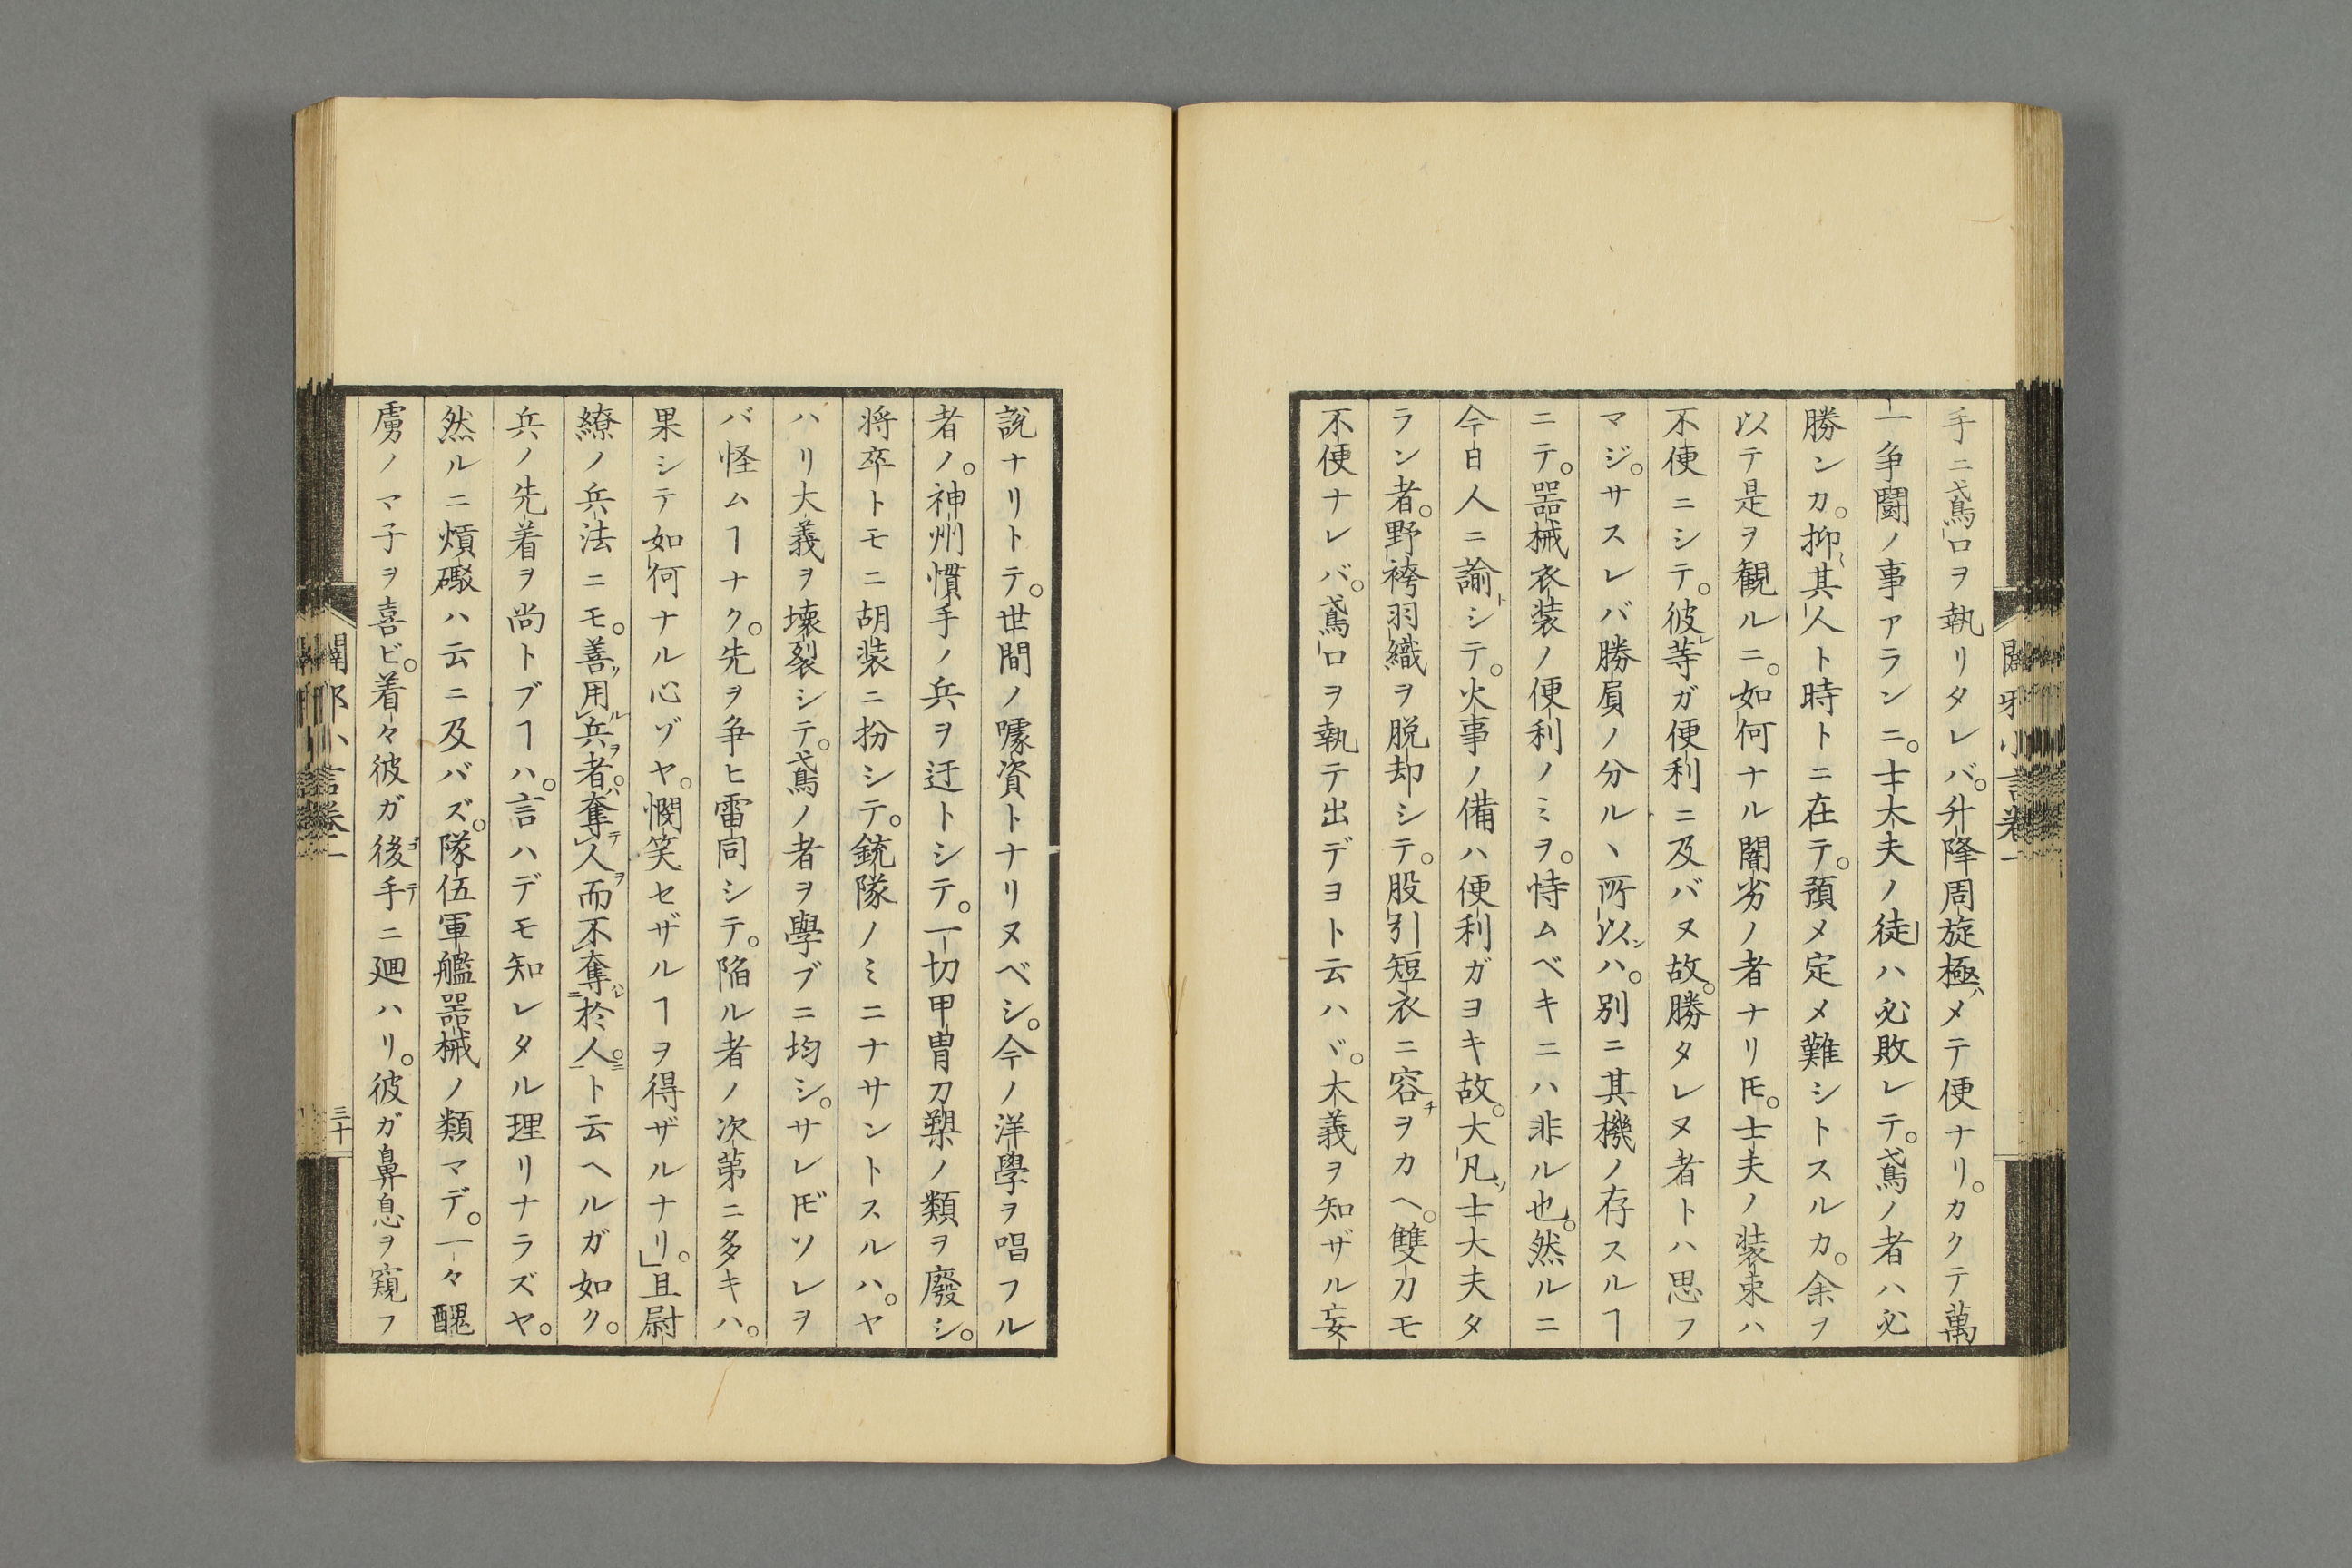 手ニ鳶口ヲ執リタレバ。升降周旋極メテ便ナリ。カクテ萬
一争闘ノ事アランニ。士大夫ノ徒ハ必敗レテ。鳶ノ者ハ必
勝ンカ。抑其人ト時トニ在テ。預メ定メ難シトスルカ。余ヲ
以テ是ヲ観ルニ。如何ナル闇劣ノ者ナリ𪜈。士夫ノ装束ハ
不便ニシテ。彼等ガ便利ニ及バヌ故。勝タレヌ者トハ思フ
マジ。サスレバ勝負ノ分ルヽ所以ハ。別ニ其機ノ存スルヿ
ニテ。器械衣装ノ便利ノミヲ。恃ムベキニハ非ル也。然ルニ
今日人ニ諭シテ。火事ノ備ハ便利ガヨキ故。大凡士大夫タ
ラン者。野袴羽織ヲ脱却シテ。股引短衣ニ容ヲカヘ。雙刀モ
不便ナレバ。鳶口ヲ執テ出デヨト云ハヾ。大義ヲ知ザル妄
説ナリトテ。世間ノ噱資トナリヌベシ。今ノ洋學ヲ唱フル
者ノ。神州慣手ノ兵ヲ迂トシテ。一切甲冑刀槊ノ類ヲ廢シ。
将卒トモニ胡装ニ扮シテ。銃隊ノミニナサントスルハ。ヤ
ハリ大義ヲ壊裂シテ。鳶ノ者ヲ學ブニ均シ。サレ𪜈ソレヲ
バ怪ムヿナク。先ヲ争ヒ雷同シテ。陥ル者ノ次第ニ多キハ。
果シテ如何ナル心ゾヤ。憫笑セザルヿヲ得ザルナリ」且尉
繚ノ兵法ニモ。善用兵者。奪人而不奪於人。ト云ヘルガ如ク。
兵ノ先着ヲ尚トブヿハ。言ハデモ知レタル理リナラズヤ。
然ルニ熕礮ハ云ニ及バズ。隊伍軍艦器械ノ類マデ。一々醜
虜ノマ子ヲ喜ビ。着々彼ガ後手ニ廻ハリ。彼ガ鼻息ヲ窺フ
三十